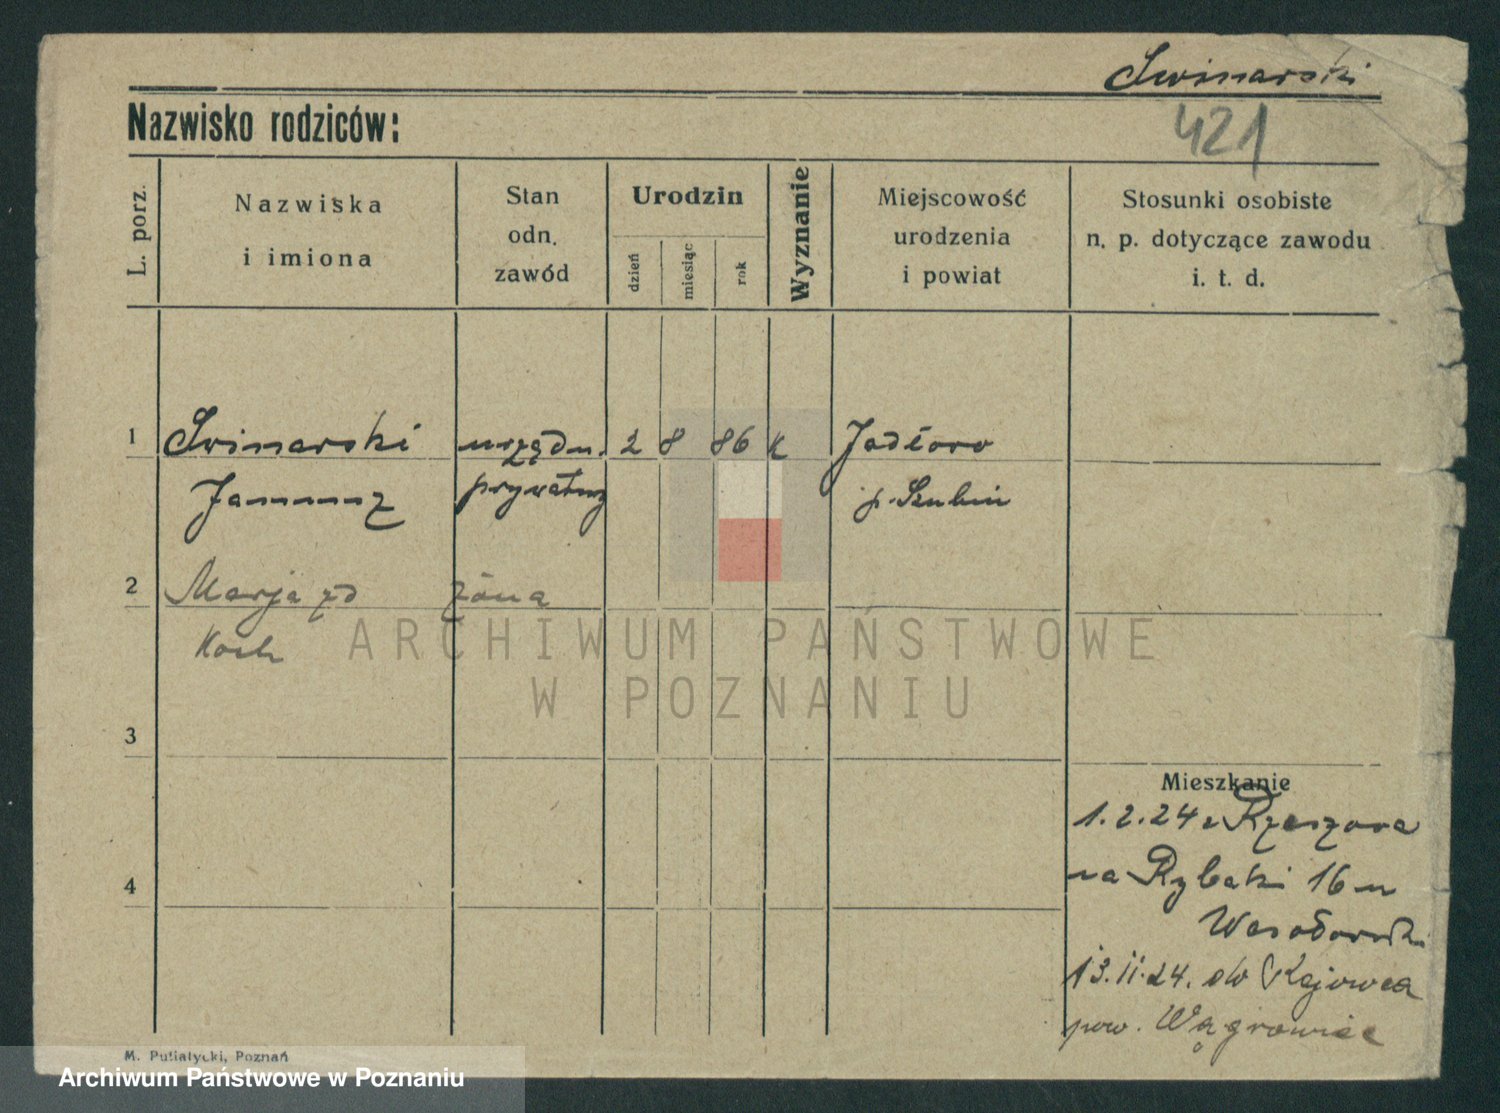 Swinarski
Nazwisko rodziców:
421
L. porz.
Nazwiska
i imiona
Stan
odn.
zawód
Urodzin
dzień
miesiąc
rok
Wyznanie
Miejscowość
urodzenia
i powiat
Stosunki osobiste
n. p. dotyczące zawodu
i. t. d.
1 Swinarski urzędn. 2 8 86 k
Janusz prywatny p. Szubin
2 Marja zd żona
Koch
ARCHIWUM PAŃSTWOWE
W POZNANIU
3
Mieszkanie
1.2.24 z Rzeszowa
na Rybaki 16 u
4
13.II.24. do
pow. Wągrowiec
M. Putiatycki, Poznań
Archiwum Państwowe w Poznaniu